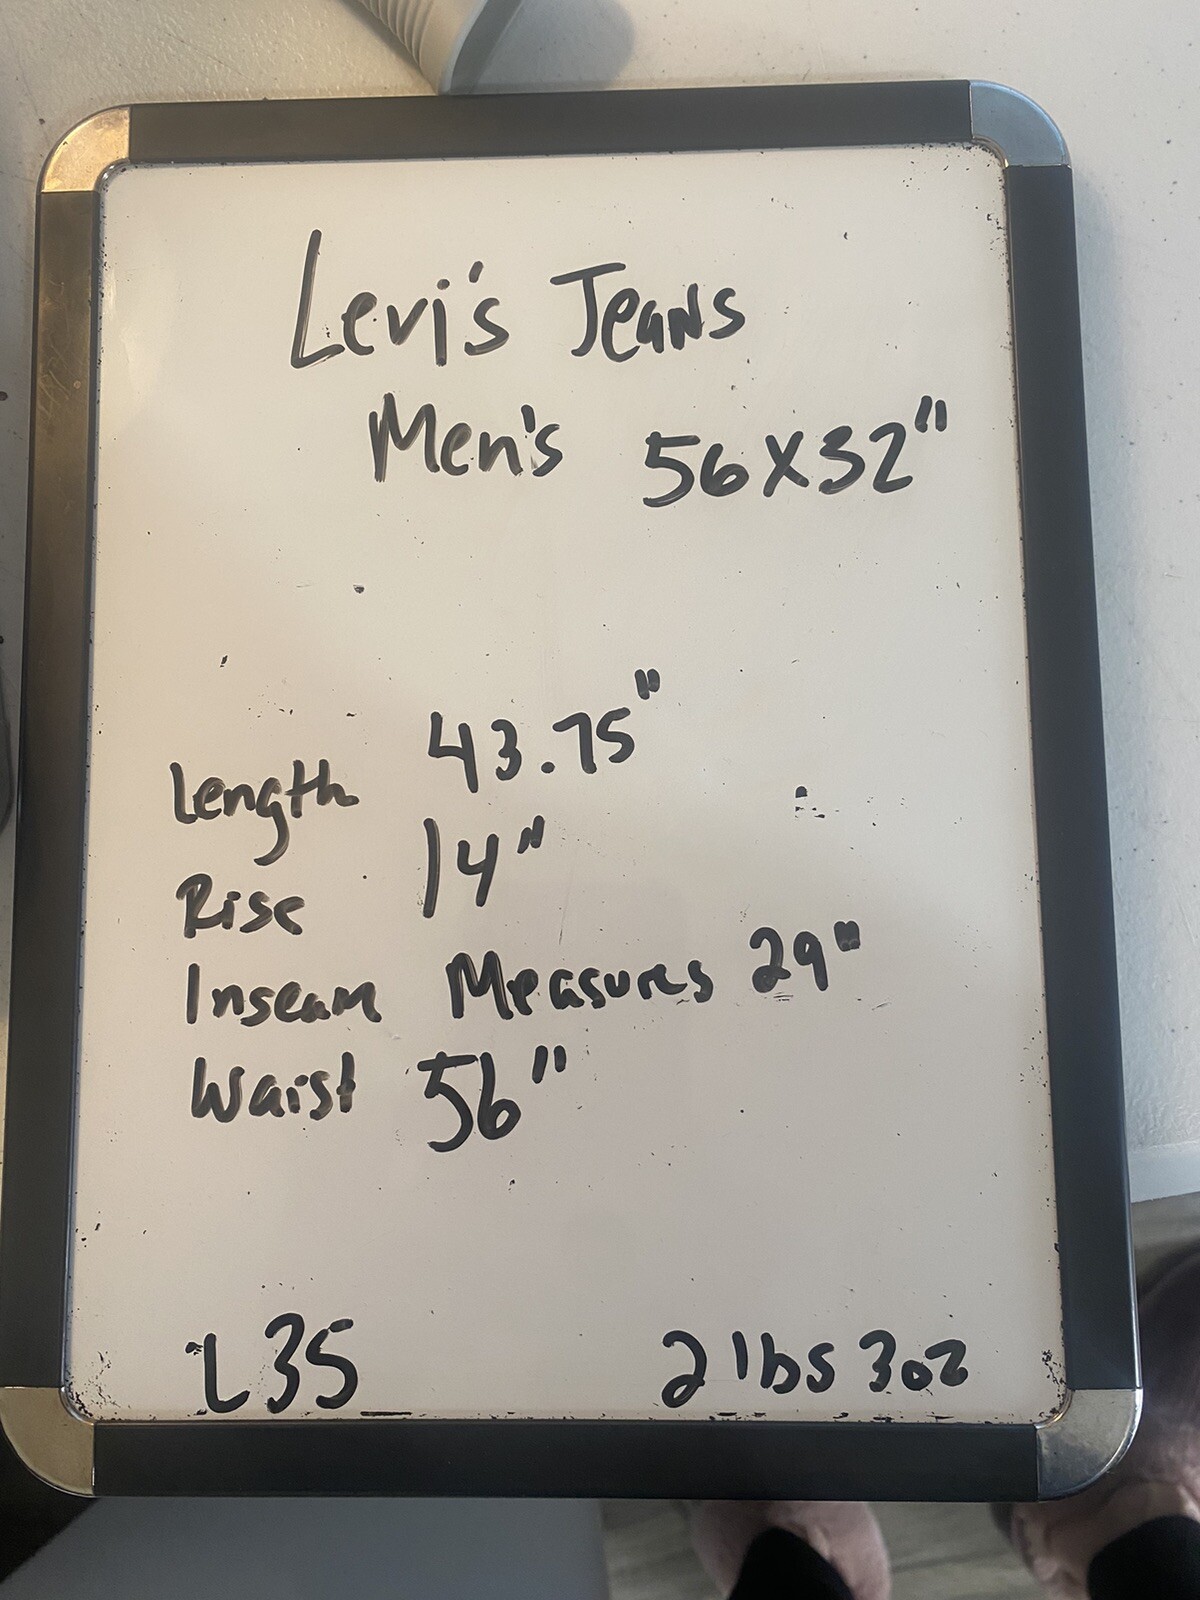 Levi's Jeans
Men's 56X32"
Length 43.75"
Rise 14"
Inseam Measures 29"
Waist 56"
L35 2 lbs 3oz